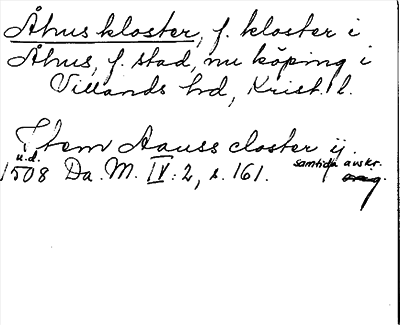 Åhus kloster, f. kloster i
Åhus, f. stad, nu köping i
Villands hd, Krist. l.
Item Aauss closter ij.
u.d.
1508 Da. M. IV: 2, s. 161. samtida avskr.
orig.